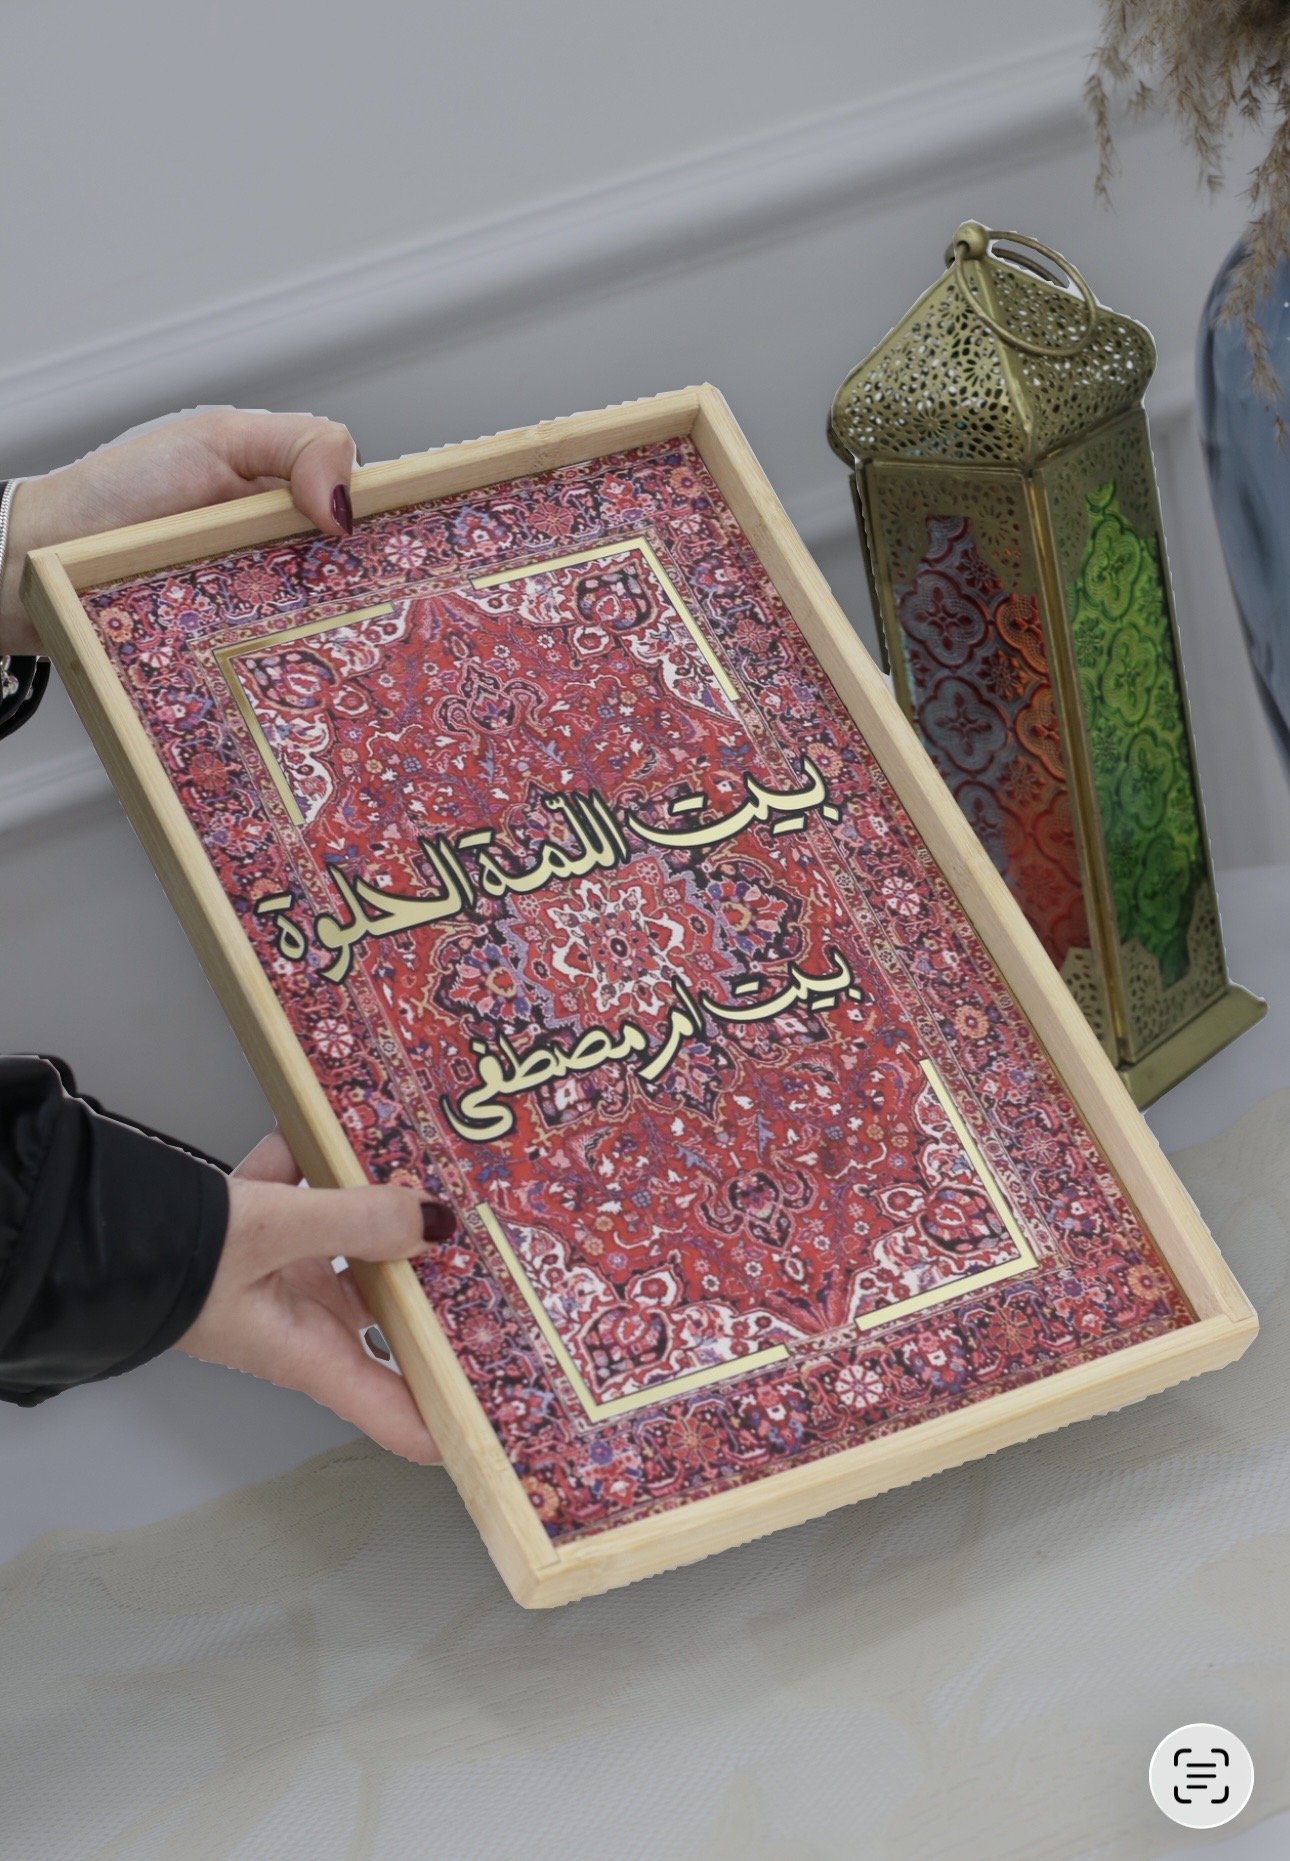 بيت اللّمة الحلوة
بيت ام مصطفى